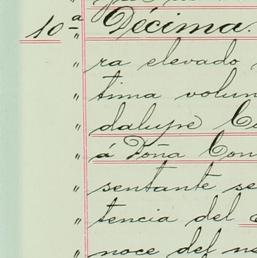 10ª Décima.
" ra elevado
" tima volun
" dalupe
" á Doña Con
" sentante se
" tencia del
" noce del